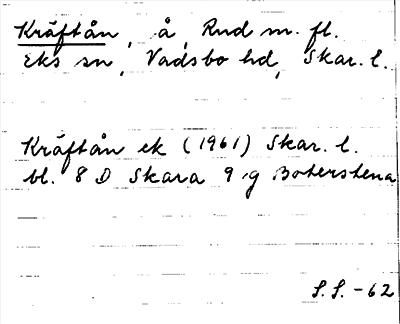 Kräftån, å, Rud m. fl.
Eks sn, Vadsbo hd, Skar. l.
Kräftån ek (1961) Skar. l.
bl. 8 D Skara 9 g Boterstena
S.S. -62